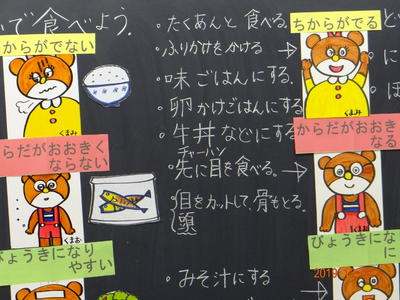 で食べよう.
からがでない
くまみ
からだがおおきく
ならない
くまお
びょうきになり
やすい
・たくあんと食べる.
・ふりかけをかける
・味ごはんにする.
・卵かけごはんにする
・牛丼などにする
チャーハン
・先に目を食べる。
目をカットして、骨もとる。
頭
・みそ汁にする
ちからがでる
くまみ
からだがおおき
なる
くまお
びょうきにな
に
・に
・ほ